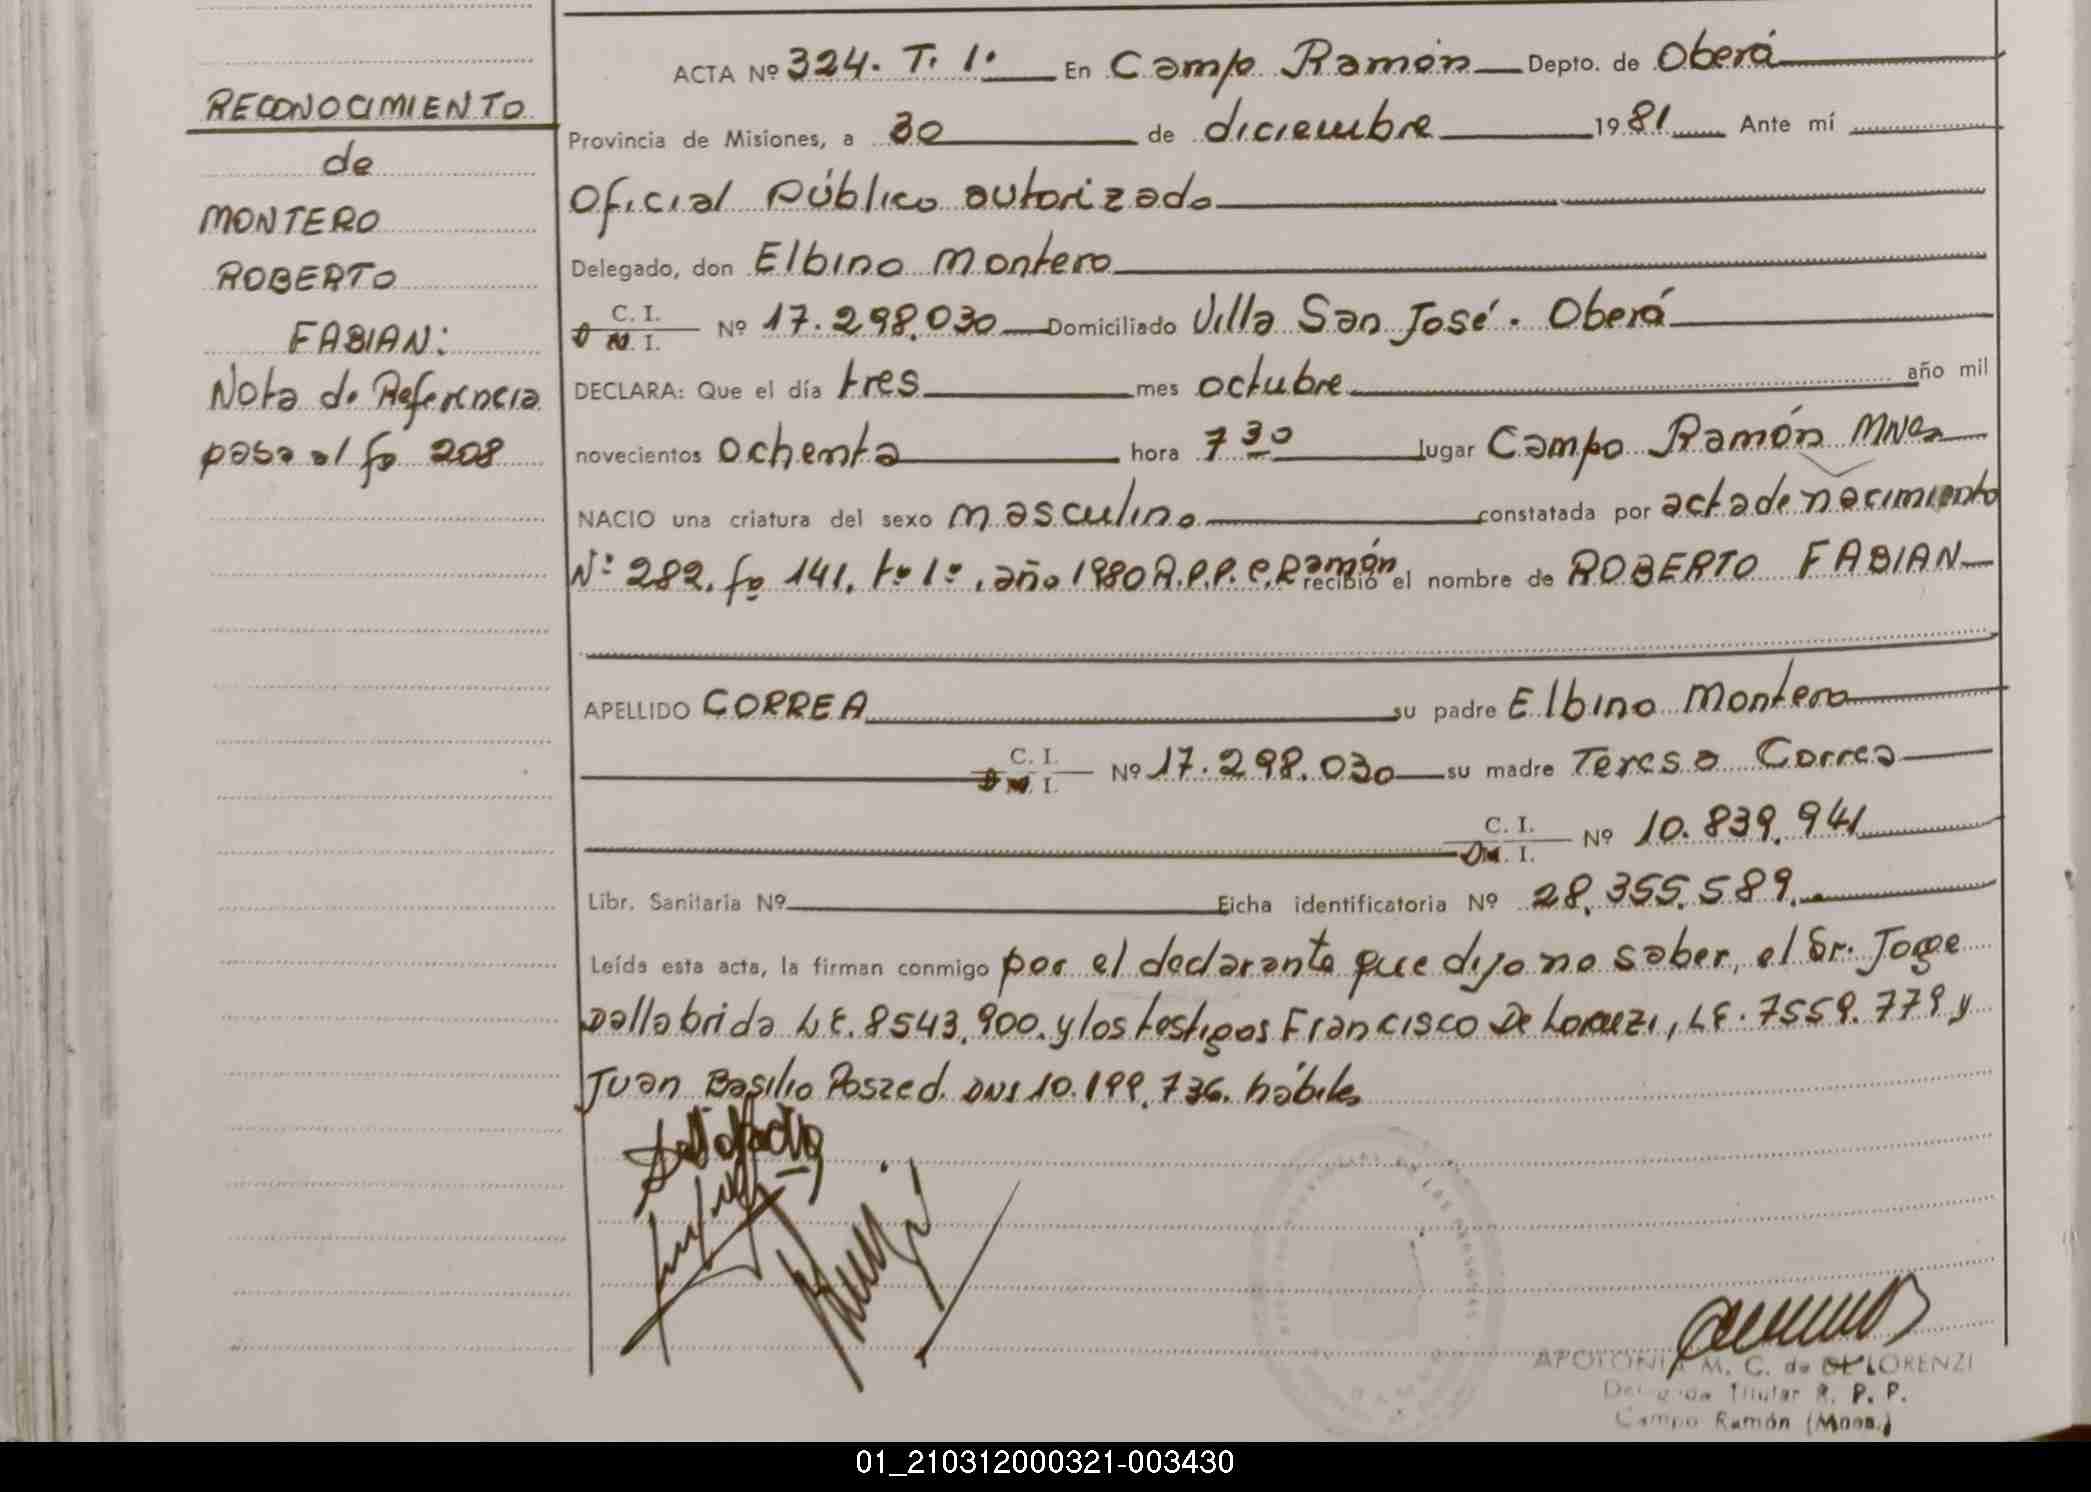 RECONOCIMIENTO
de
MONTERO
ROBERTO
FABIAN:
Nota de Referencia
pasa al fo 208
ACTA Nº 324. T. 1º En Campo Ramón Depto. de Oberá
Provincia de Misiones, a 30 de diciembre 1981 Ante mí
Oficial Público autorizado
Delegado, don Elbino Montero
C. I.
D N. I. Nº 17.298.030 Domiciliado Villa San José. Oberá
DECLARA: Que el día tres mes octubre año mil
novecientos ochenta hora 7 30 lugar Campo Ramón Mnes
NACIO una criatura del sexo masculino constatada por acta de nacimiento
Nº 282. fº 141. tº 1º, año 1980 R.P.P. C. Ramón recibió el nombre de ROBERTO FABIAN
APELLIDO CORREA su padre Elbino Montero
C. I.
D N. I. Nº 17.298.030 su madre Teresa Correa
C. I.
D N. I. Nº 10.839.941
Libr. Sanitaria Nº Ficha identificatoria Nº 28.355.589.
Leída esta acta, la firman conmigo por el declarante que dijo no saber, el Sr. Jorge
Dallabrida L.E. 8543.900. y los testigos Francisco De Lorenzi, L.E. 7559.779 y
Juan Basilio Poszed. DNI 10.199.736. hábiles
APOLONIA M. C. de DE LORENZI
Delegada Titular R. P. P.
Campo Ramón (Mnes.)
01_210312000321-003430